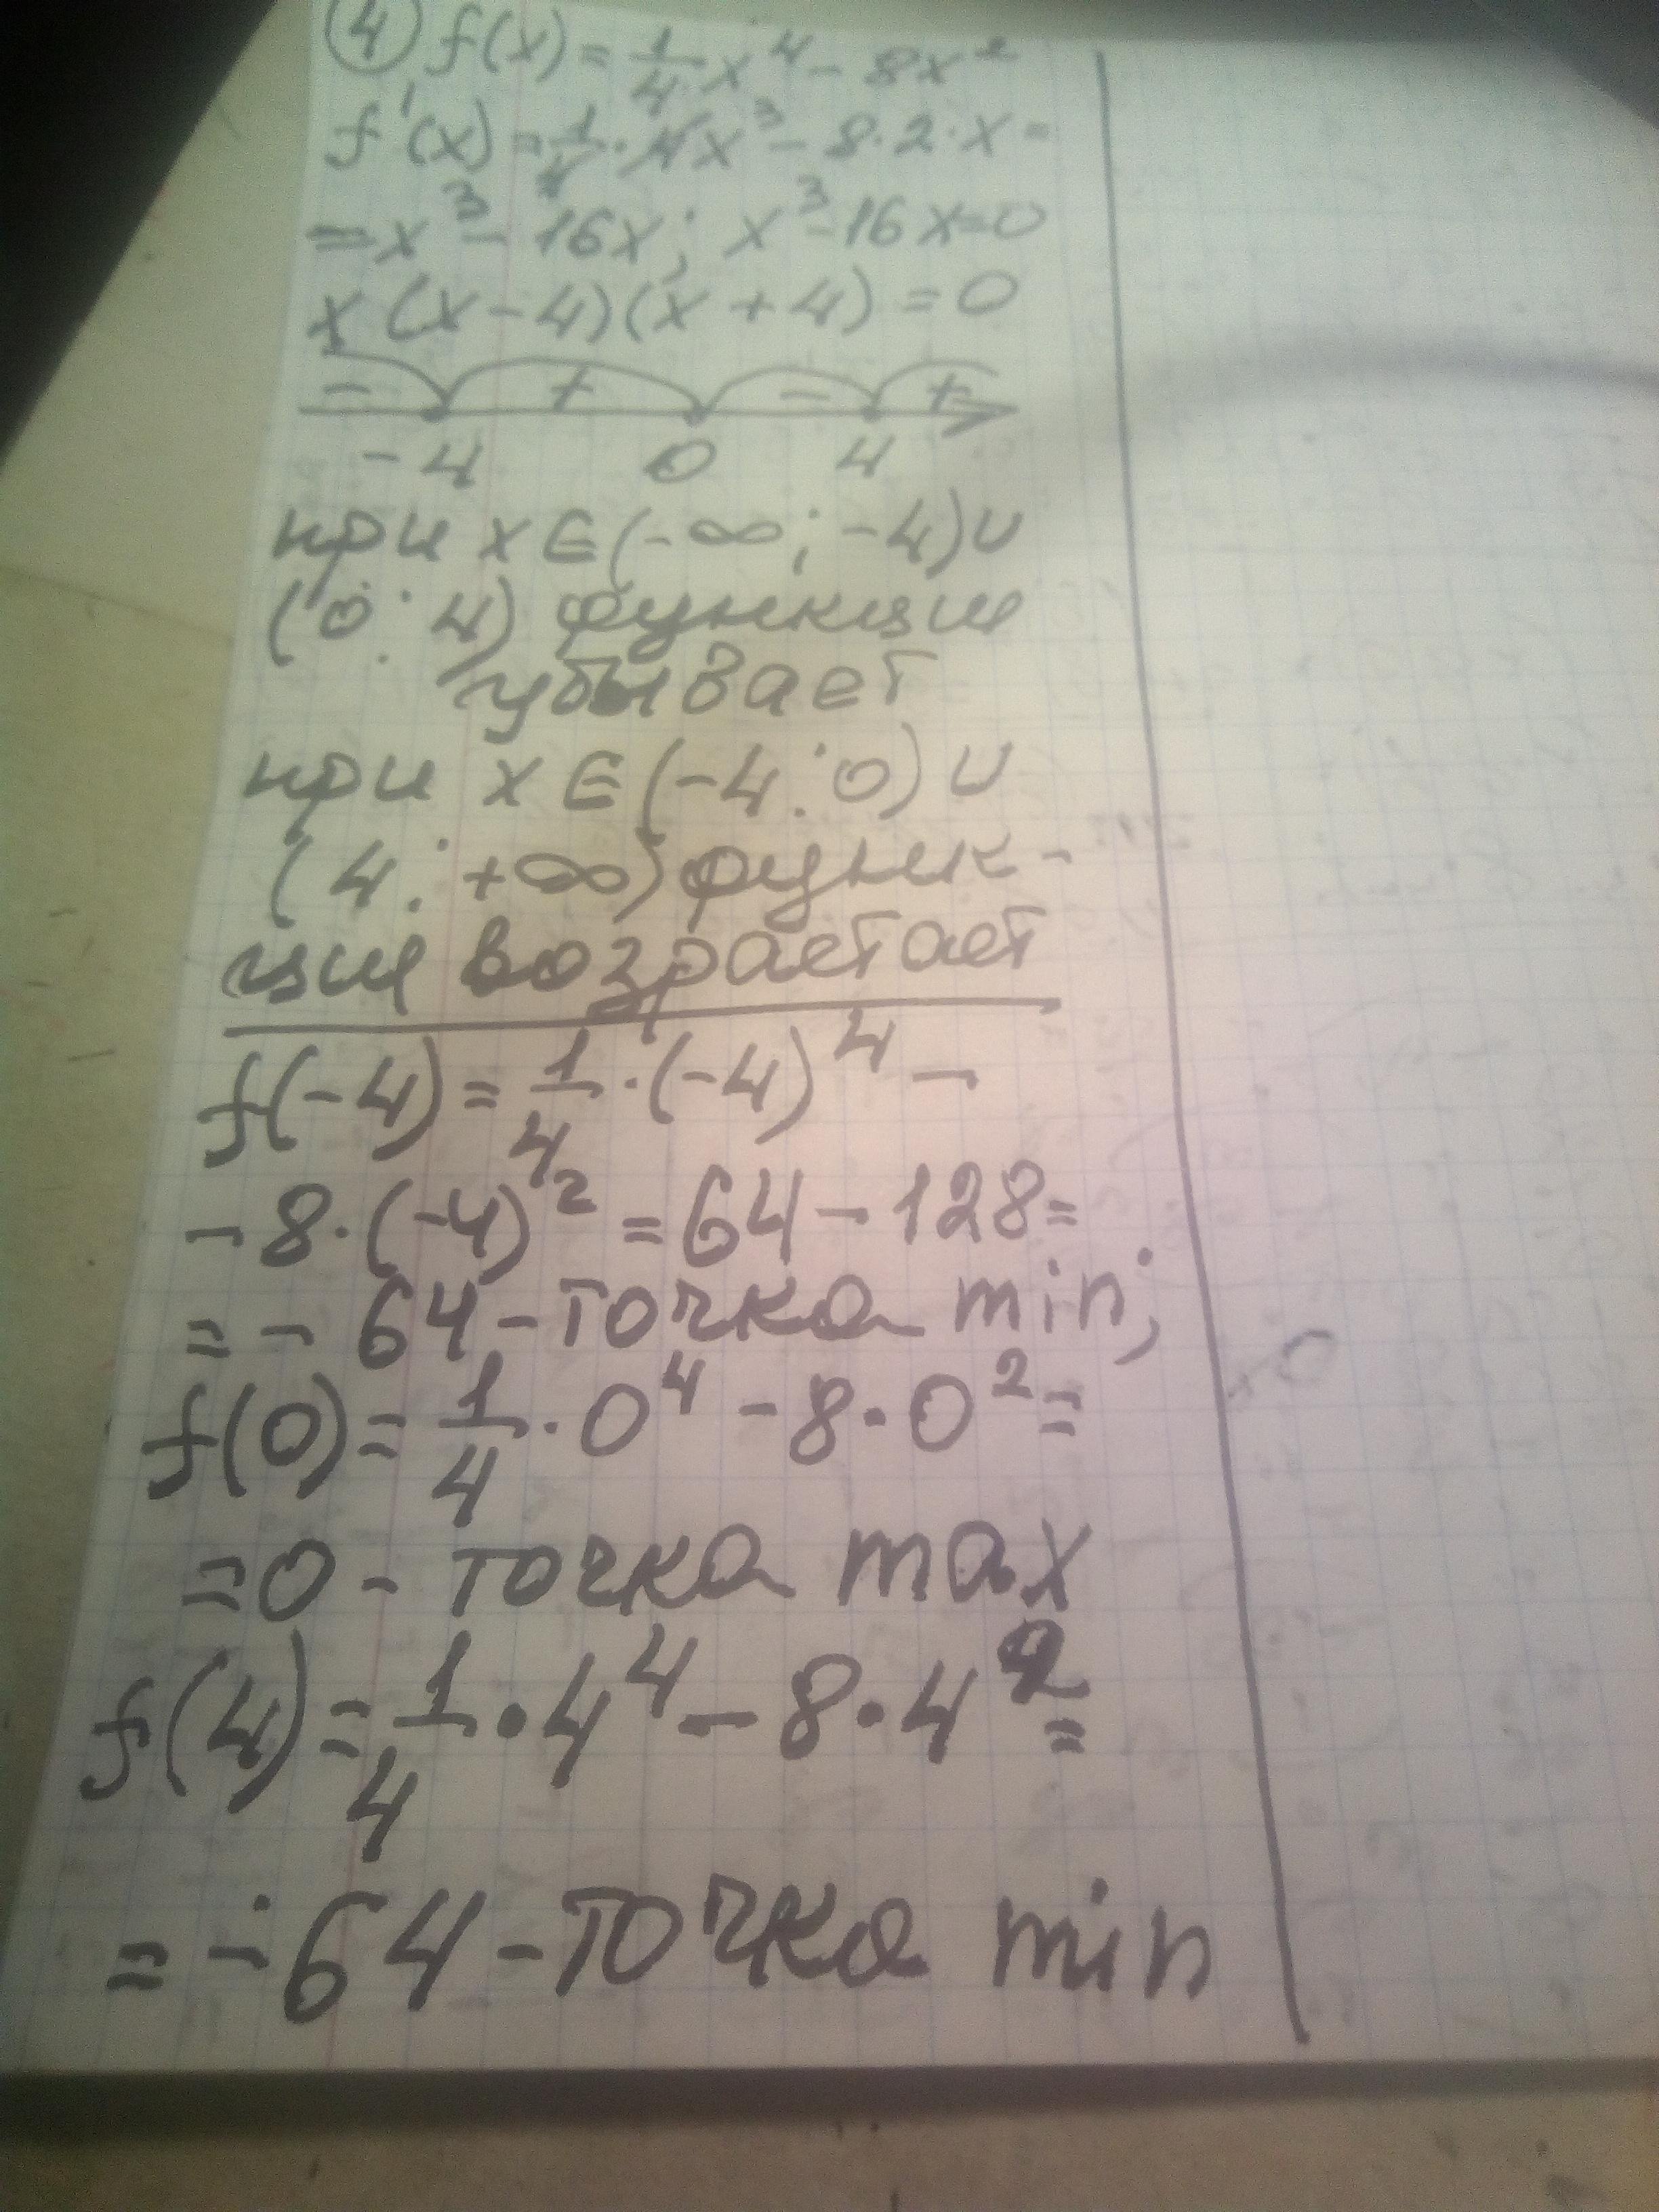 ④ f(x) = 1/4 x⁴ - 8x²
f'(x) = 1/4 · 4x³ - 8·2·x =
= x³ - 16x; x³ - 16x = 0
x (x - 4)(x + 4) = 0
- + - +
-4 0 4
при x ∈ (-∞; -4) ∪
(0; 4) функция
убывает
при x ∈ (-4; 0) ∪
(4; +∞) функ-
ция возрастает
f(-4) = 1/4 · (-4)⁴ -
- 8·(-4)² = 64 - 128 =
= - 64 - точка min;
f(0) = 1/4 · 0⁴ - 8·0² =
= 0 - точка max
f(4) = 1/4 · 4⁴ - 8·4² =
= -64 - точка min